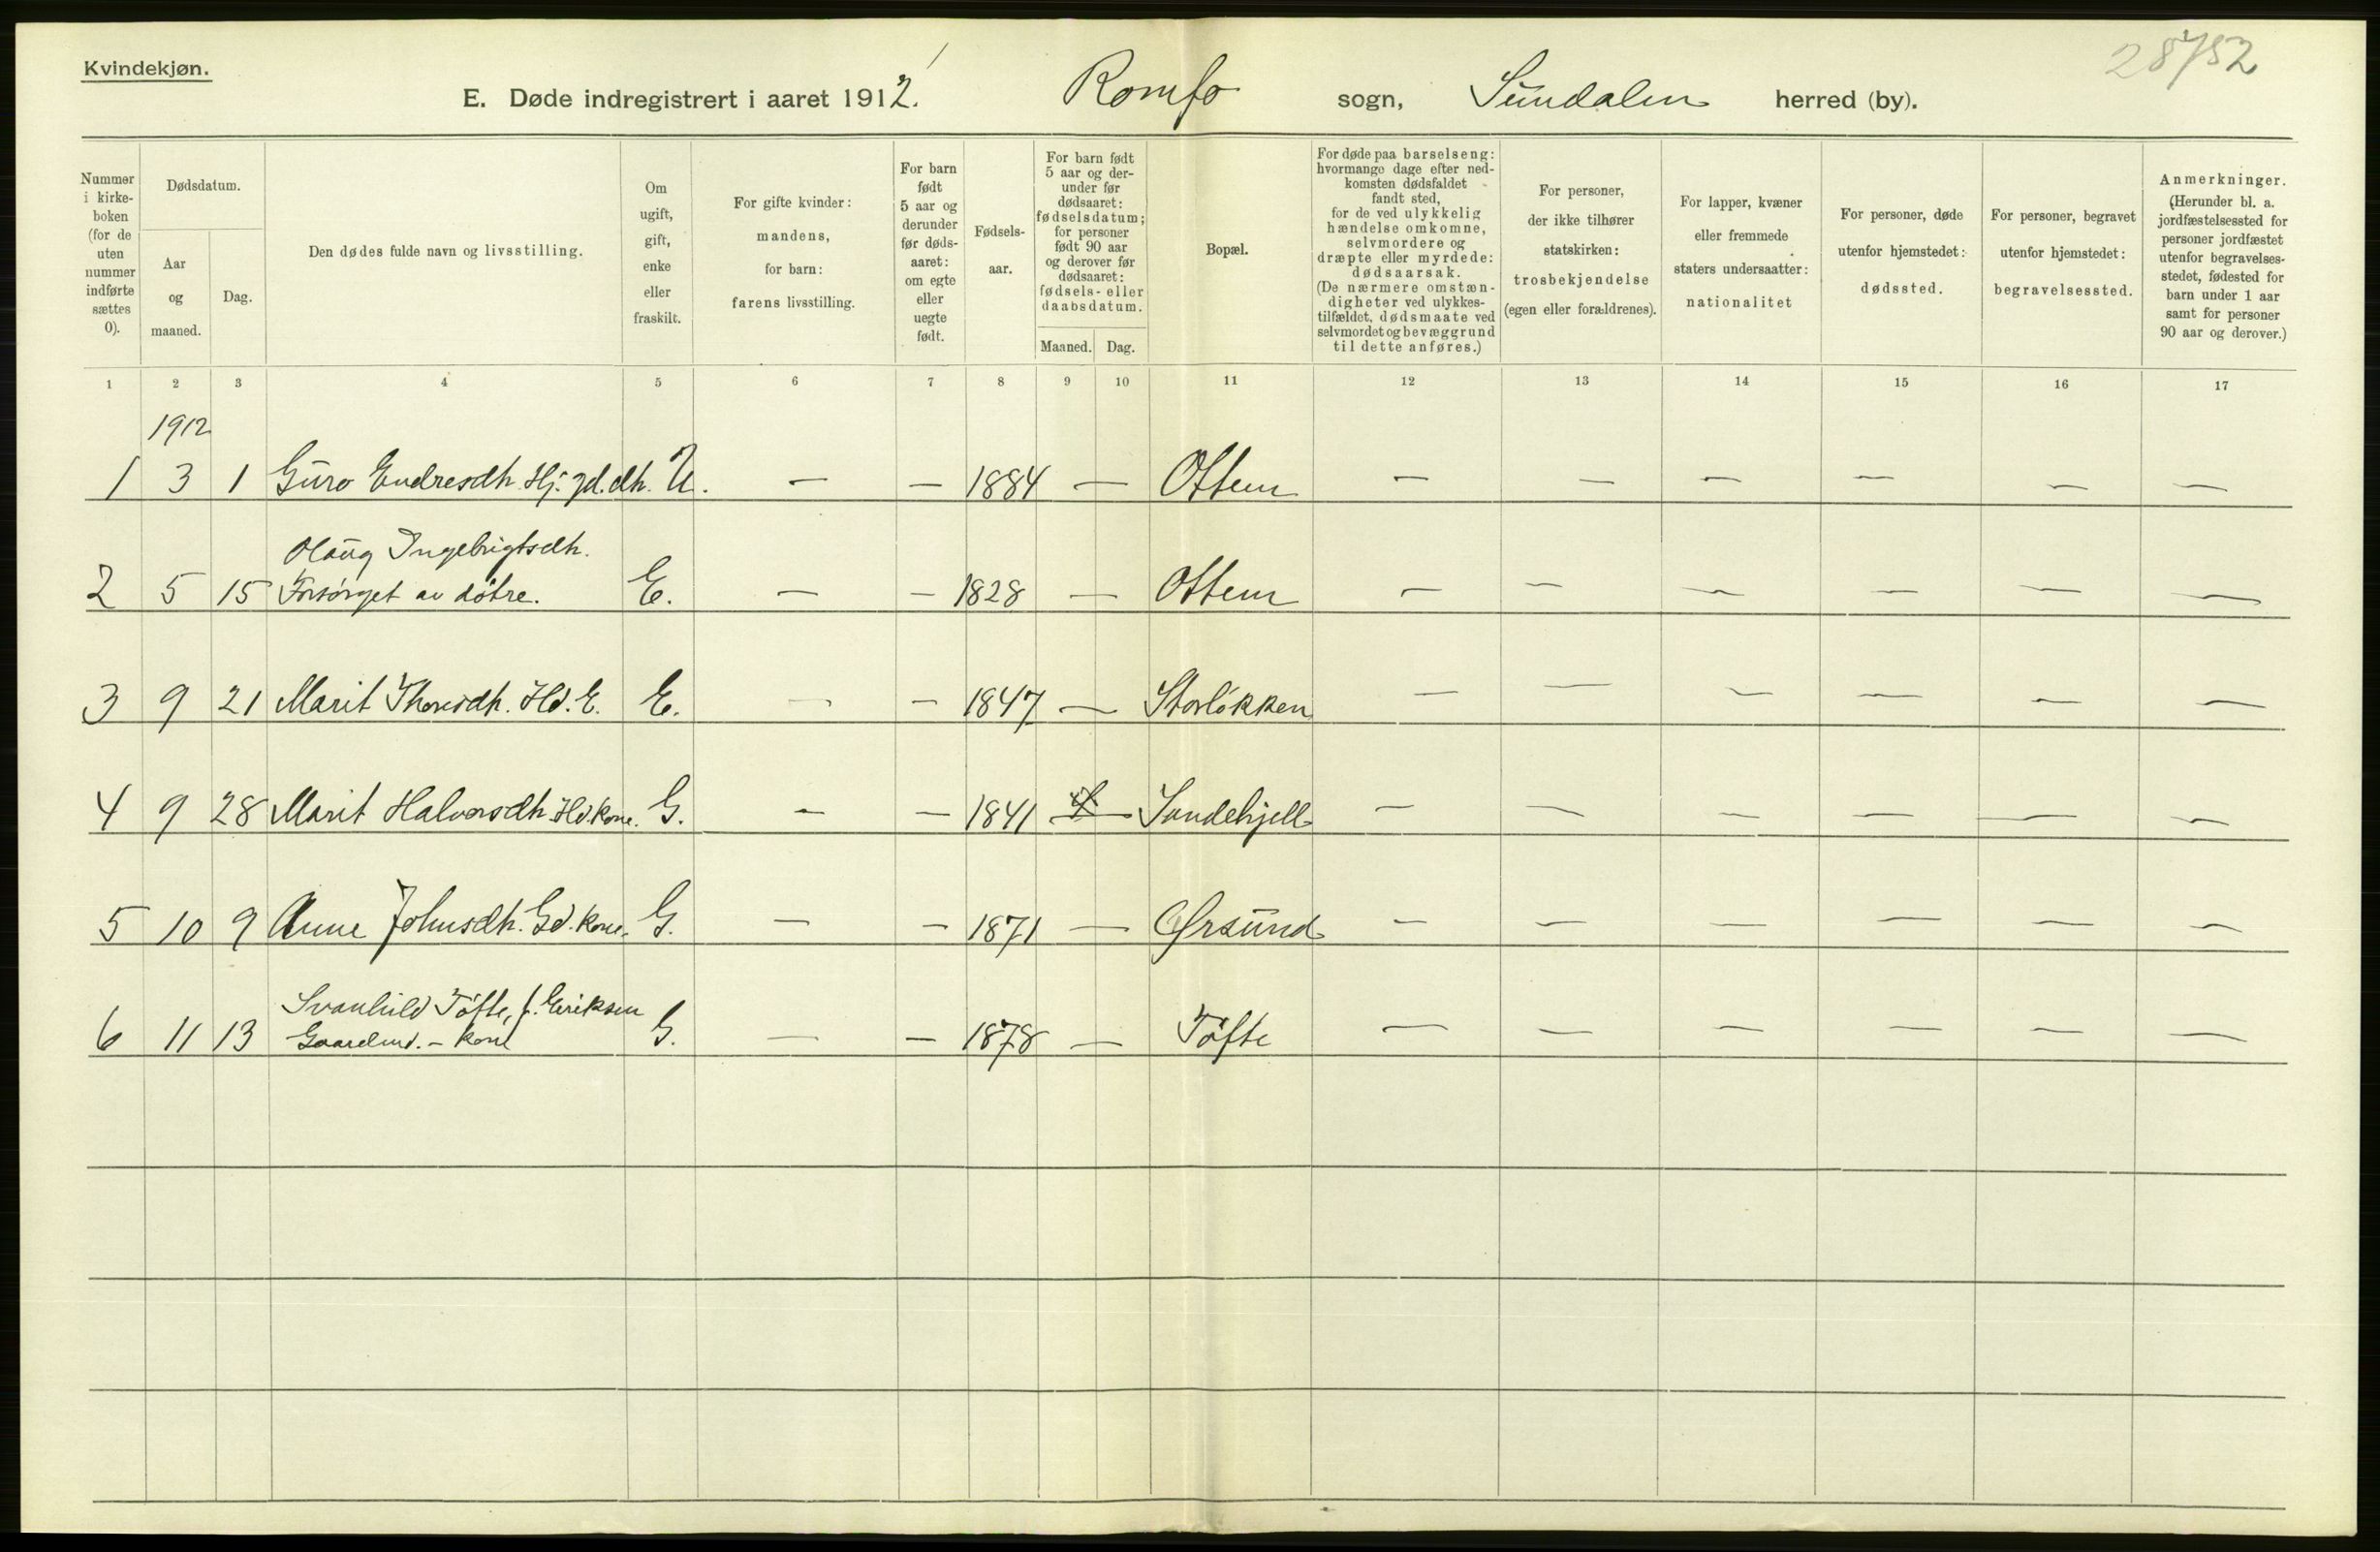 Kvindekjøn.
28752
E. Døde indregistrert i aaret 1912. Romfo sogn, Sundalen herred (by).
Nummer i kirkeboken (for de uten nummer indførte sættes 0).
Dødsdatum.
Aar og maaned.
Dag.
Den dødes fulde navn og livsstilling.
Om ugift, gift, enke eller fraskilt.
For gifte kvinder: mandens, for barn: farens livsstilling.
For barn født 5 aar og derunder før dødsaaret: om egte eller uegte født.
Fødselsaar.
For barn født 5 aar og derunder før dødsaaret: fødselsdatum; for personer født 90 aar og derover før dødsaaret: fødsels- eller daabsdatum.
Maaned. Dag.
Bopæl.
For døde paa barselseng: hvormange dage efter nedkomsten dødsfaldet fandt sted, for de ved ulykkelig hændelse omkomne, selvmordere og dræpte eller myrdede: dødsaarsak. (De nærmere omstændigheter ved ulykkestilfældet, dødsmaate ved selvmordet og bevæggrund til dette anføres.)
For personer, der ikke tilhører statskirken: trosbekjendelse (egen eller forældrenes).
For lapper, kvæner eller fremmede staters undersaatter: nationalitet
For personer, døde utenfor hjemstedet: dødssted.
For personer, begravet utenfor hjemstedet: begravelsessted.
Anmerkninger. (Herunder bl. a. jordfæstelsessted for personer jordfæstet utenfor begravelsesstedet, fødested for barn under 1 aar samt for personer 90 aar og derover.)
1 2 3 4 5 6 7 8 9 10 11 12 13 14 15 16 17
1912
1 3 1 Guro Endresdh. Hj. gd.dh. U. — — 1884 — Ottem — — — — — —
Olaug Ingebrigtsdh.
2 5 15 Forsørget av døtre. E. — — 1828 — Ottem — — — — — —
3 9 21 Marit Thoresdh. Hd. E. E. — — 1847 — Storløkken — — — — — —
4 9 28 Marit Halvorsdh. Hd. kone. G. — — 1841 — — — — — — —
5 10 9 Anne Johnsdh. Gd. kone. G. — — 1871 — Ørsund — — — — — —
Svanhild Tøfte, f. Eeriksen
6 11 13 Gaardmd. - kone G. — — 1878 — Tøfte — — — — — —